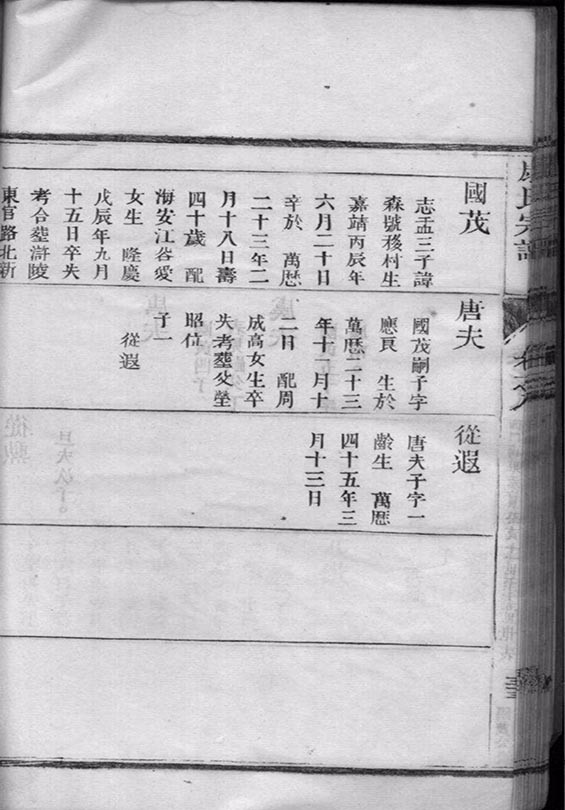 氏宗譜
卷之八
國茂
志孟三子諱
森號移村生
嘉靖丙辰年
六月二十日
辛於 萬厯
二十三年二
月十八日壽
四十歲 配
海安江谷愛
女生 隆慶
戊辰年九月
十五日卒失
考合塟滸陵
東官路北新
唐夫
國茂嗣子字
應良 生於
萬厯二十三
年十一月十
二日 配周
成高女生卒
失考塟父塋
昭位
子一
從遐
從遐
唐夫子字一
齡生 萬厯
四十五年三
月十三日